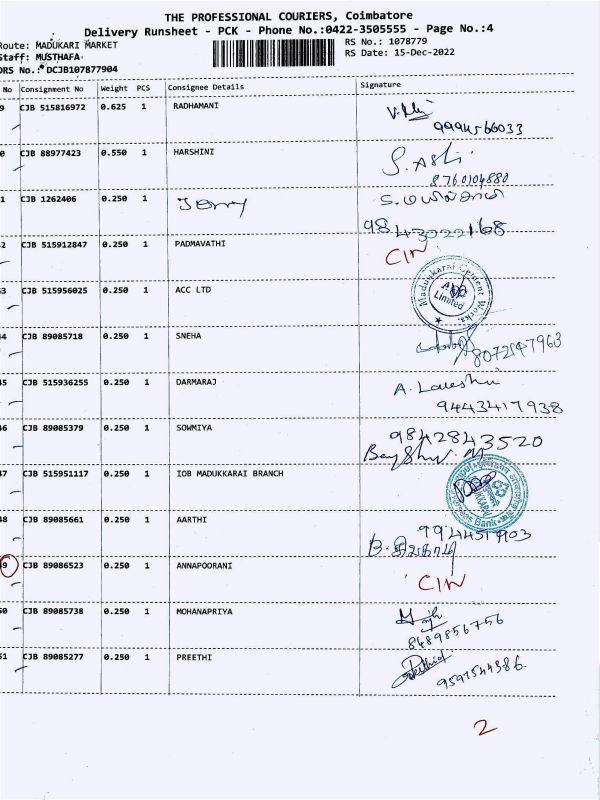 THE PROFESSIONAL COURIERS, Coimbatore
Delivery Runsheet - PCK - Phone No.:0422-3505555 - Page No.:4
Route: MADUKARI MARKET
RS No.: 1078779
Staff: MUSTHAFA
RS Date: 15-Dec-2022
DRS No.: DCJB107877904
No Consignment No Weight PCS Consignee Details Signature
9 CJB 515816972 0.625 1 RADHAMANI
9994566033
0 CJB 88977423 0.550 1 HARSHINI
8760104880
1 CJB 1262406 0.250 1 Jerry
9843022168
2 CJB 515912847 0.250 1 PADMAVATHI CIN
3 CJB 515956025 0.250 1 ACC LTD Madukkarai Cement Works ACC Limited
4 CJB 89085718 0.250 1 SNEHA
8072547963
5 CJB 515936255 0.250 1 DARMARAJ
9443417938
6 CJB 89085379 0.250 1 SOWMIYA 9842843520
7 CJB 515951117 0.250 1 IOB MADUKKARAI BRANCH
8 CJB 89085661 0.250 1 AARTHI 9944519903
9 CJB 89086523 0.250 1 ANNAPOORANI CIN
0 CJB 89085738 0.250 1 MOHANAPRIYA
8489856756
1 CJB 89085277 0.250 1 PREETHI
9597544386
2